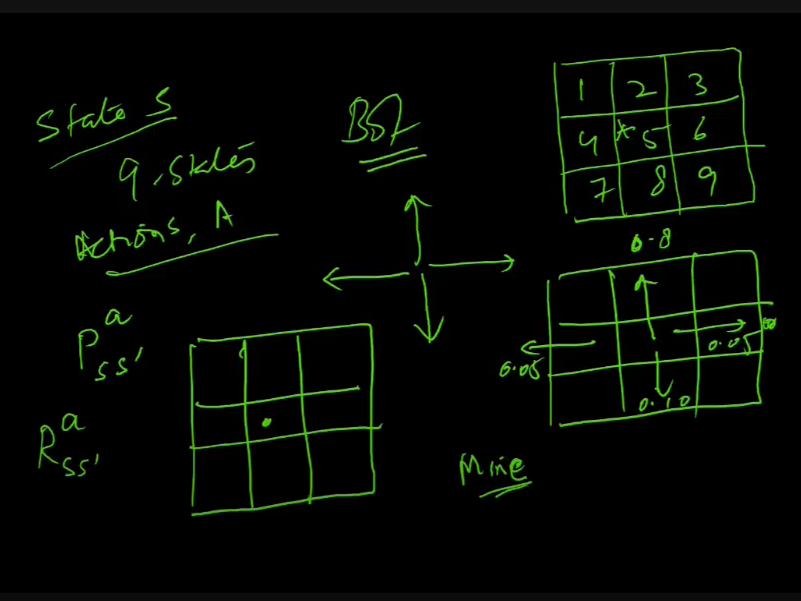 States
9 states
Actions, A
P a ss'
R a ss'
BSF
1 2 3
4 * 5 6
7 8 9
0.8
0.05
0.05
0.10
Mine